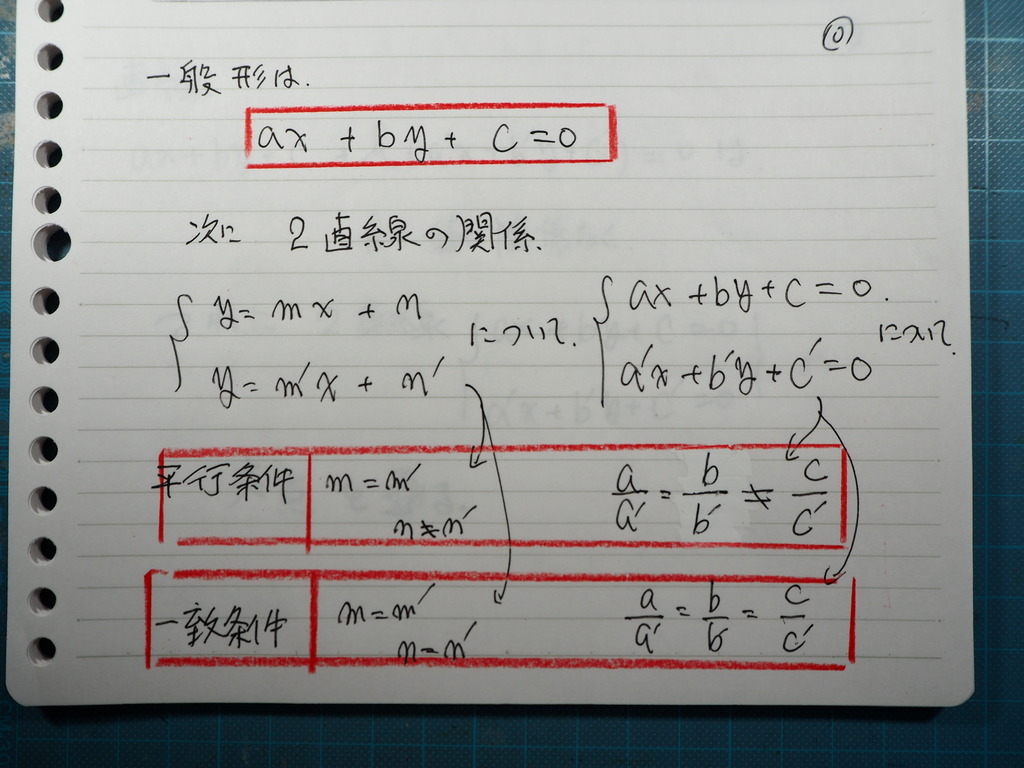 ⑩
一般形は.
ax + by + c = 0
次に 2直線の関係.
y = mx + n
y = m'x + n'
について.
ax + by + c = 0.
a'x + b'y + c' = 0
について.
平行条件 m = m' a/a' = b/b' ≠ c/c'
n ≠ n'
一致条件 m = m' a/a' = b/b = c/c'
n = n'